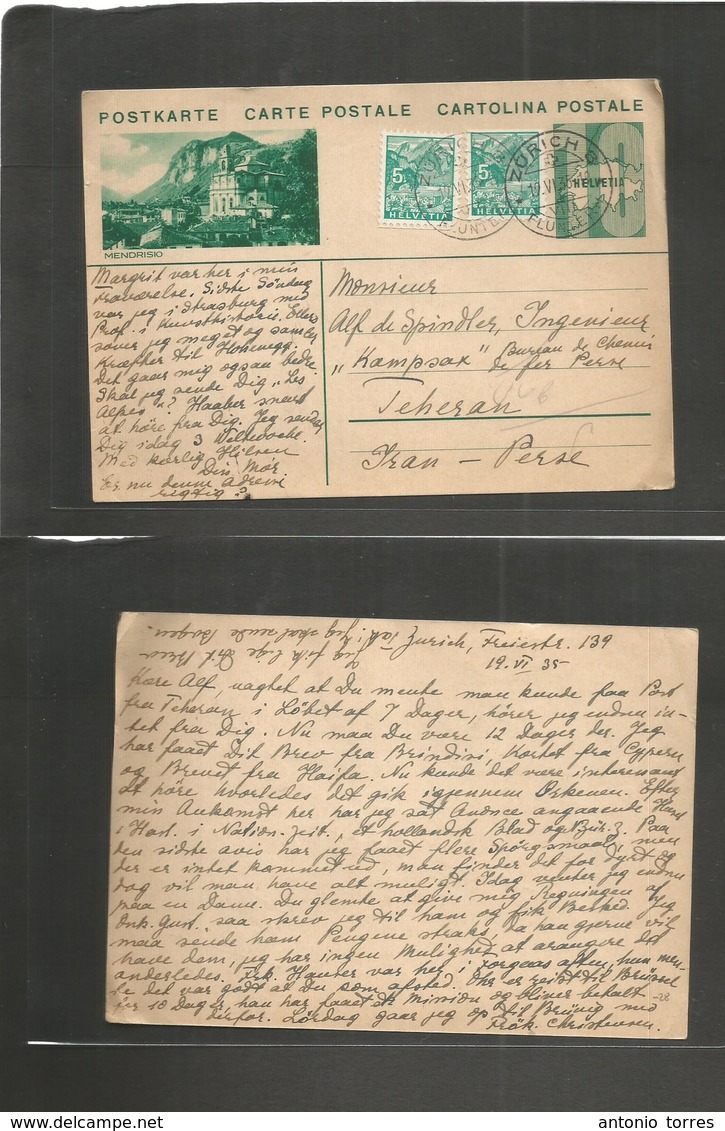 POSTKARTE CARTE POSTALE CARTOLINA POSTALE
5 HELVETIA
5 HELVETIA
HELVETIA
ZÜRICH
ZÜRICH
FLUNTERN
MENDRISIO
Margrit var her i min
Fraværelse. Sidste Söndag
var jeg i Strasburg med
Prof. i Kunsthistorie. Ellers
sover jeg meget og samler
Kræfter til Hohenegg.
Det gaar mig ogsaa bedre.
Skal jeg sende Dig "Les
Alpes"? Haaber snart
at höre fra Dig. Jeg sender
Dig idag 3 Weltwoche.
Med kærlig Hilsen
Din Mor
Er nu denne Adresse
rigtig?
Monsieur
Alf de Spindler, Ingenieur
„Kampsax" Bureau de Chemin
de fer Perse
Teheran
Iran - Perse
Zurich, Freiestr. 139
19. VI 35
Kære Alf, uagtet at Du mente man kunde faa Post
fra Teheran i Löbet af 7 Dager, hörer jeg endnu in-
tet fra Dig. Nu maa Du være 12 Dager der. Jeg
har faaet Dit Brev fra Brindisi, Kortet fra Cypern
og Brevet fra Haifa. Nu kunde det være interessant
at höre hvorledes det gik igjennem Örkenen. Efter
min Ankomst her har jeg sat Anonce angaaende
i Nation. Zeit., et hollandsk Blad og Zür. Z. Paa
den sidste avis har jeg faaet flere Spörgsmaal, men
der er intet kommet ud, man finder det for dyrt og
dog vil man have alt muligt. Idag venter jeg endnu
paa en Dame. Du glemte at give mig Regningen af
Onk. Gust., saa skrev jeg til ham og fik Besked. Jeg
maa sende ham Pengene straks, da han gjerne vil
have dem, jeg har ingen Mulighed at arangere det
anderledes. Frk. Hauser var her i forgaars aften, hun men-
te det var godt at Du kom afsted. er reist til Brüssel
for 10 Dager, han har faaet Mission og bliver betalt
derfor. Lördag gaar jeg op til Brünig med
Frök. Christensen.
antonio torres